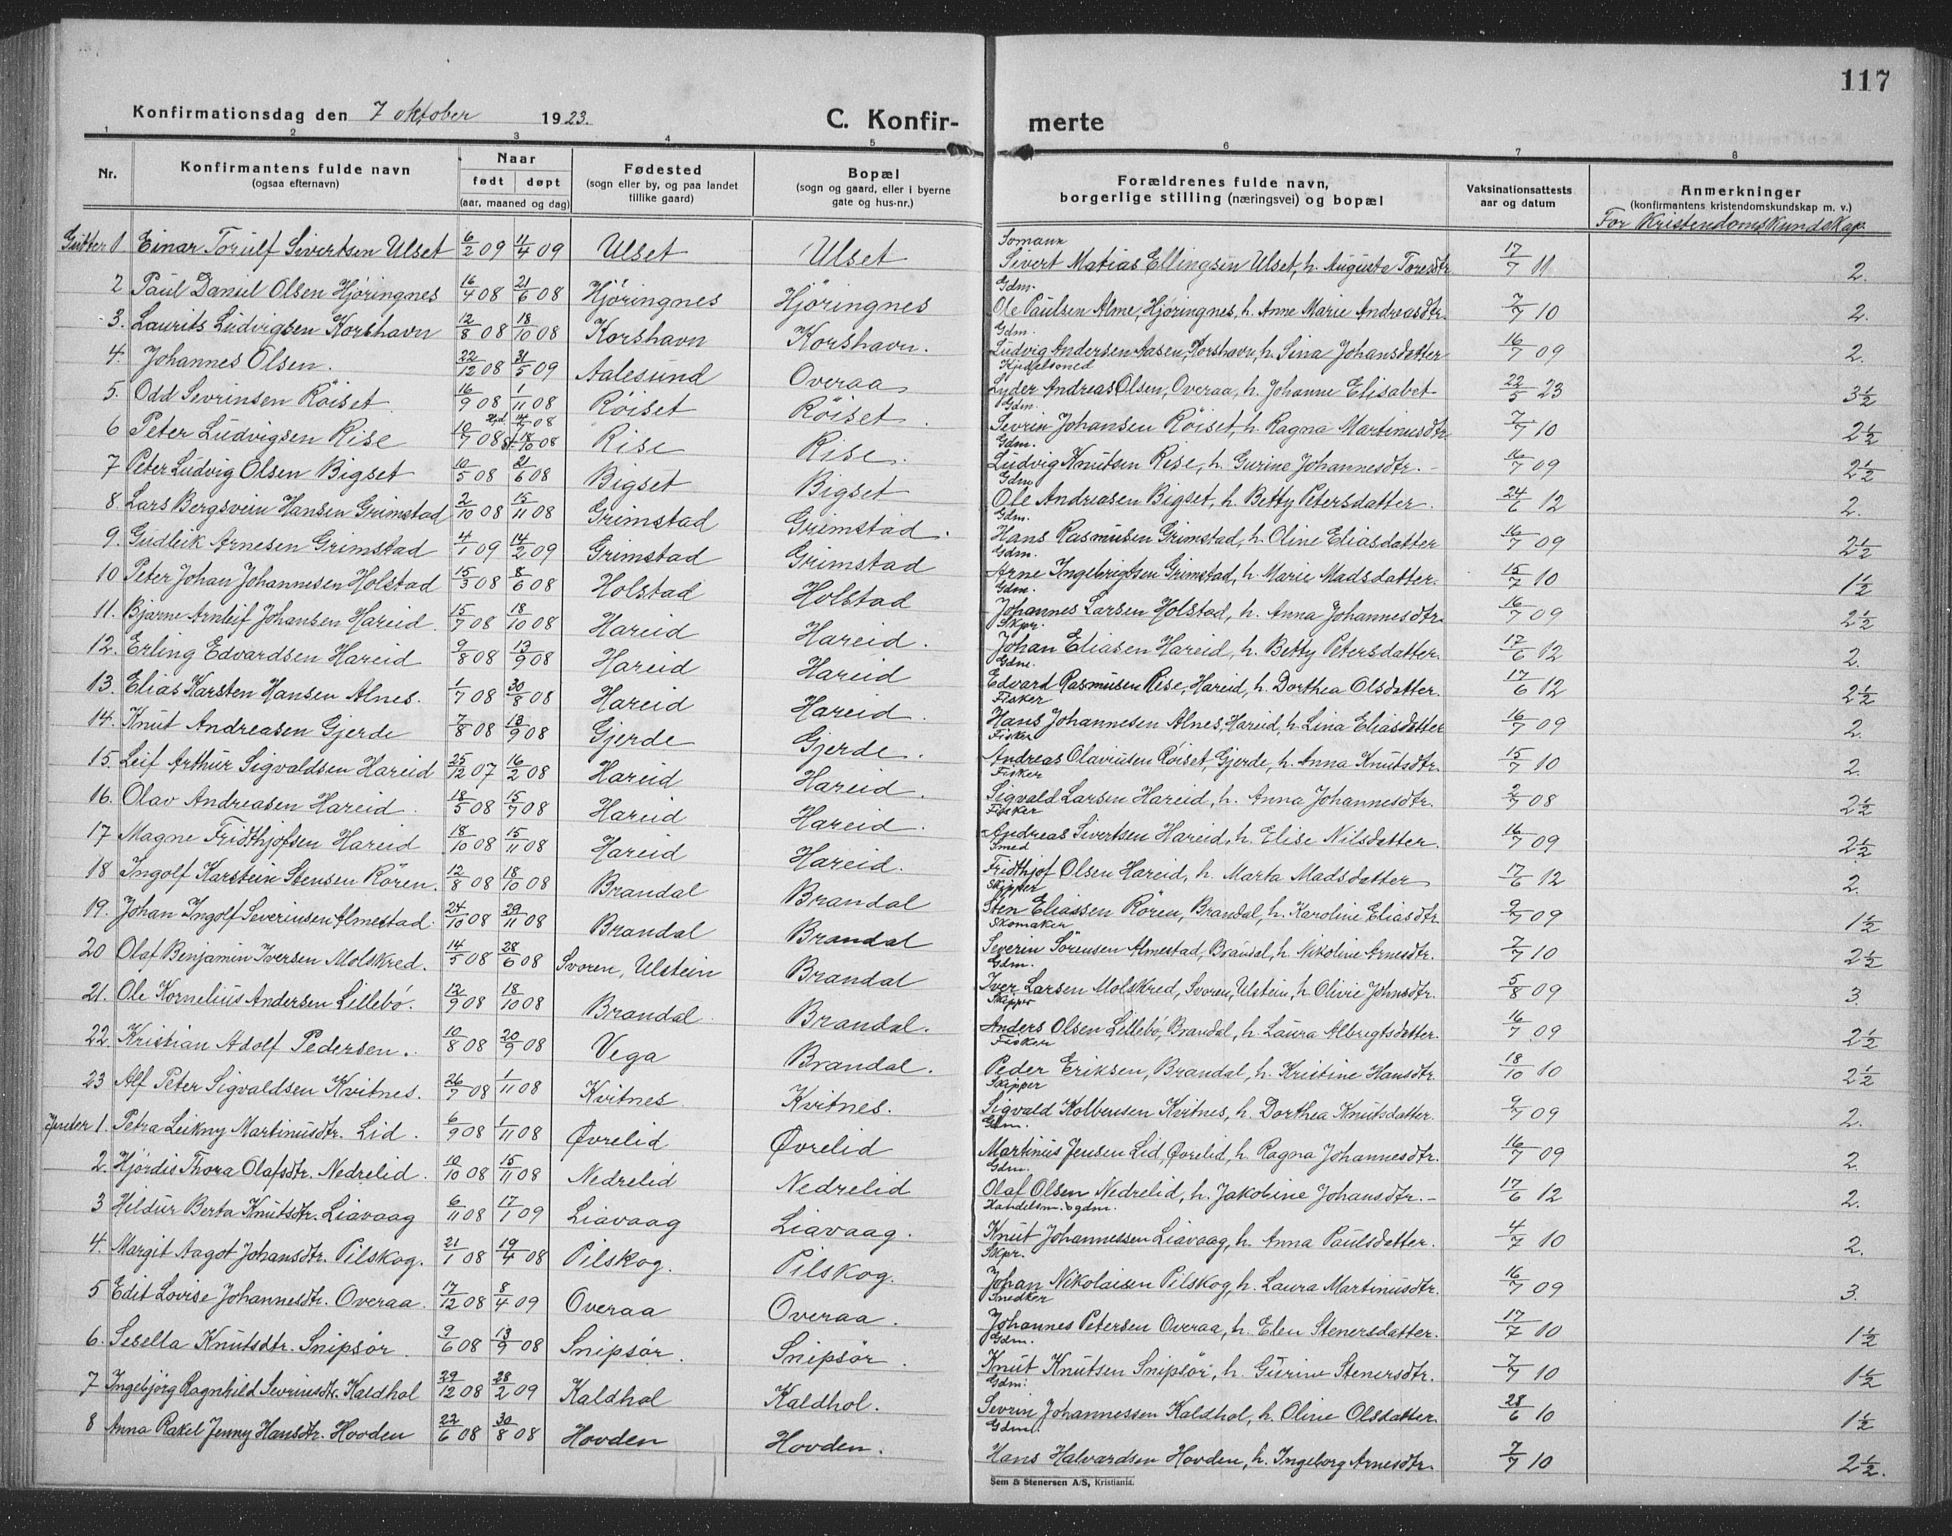 117
Konfirmationsdag den 7 oktober 1923.
C. Konfir- merte
1 2 3 4 5 6 7 8
Nr. Konfirmantens fulde navn (ogsaa efternavn) Naar født døpt (aar, maaned og dag) Fødested (sogn eller by, og paa landet tillike gaard) Bopæl (sogn og gaard, eller i byerne gate og hus-nr.) Forældrenes fulde navn, borgerlige stilling (næringsvei) og bopæl Vaksinationsattests aar og datum Anmerkninger (konfirmantens kristendomskundskap m. v.)
For Kristendomskundskap
Gutter 1 Einar Torulf Sivertsen Ulset 6/2 09 4/4 09 Ulset Ulset Sivert Matias Ellingsen Ulset, h. Auguste Toresdtr 17/7 11 2.
2 Paul Daniel Olsen Hjøringnes 16/4 08 21/6 08 Hjøringnes Hjøringnes Gdm. Ole Paulsen Alme, Hjøringnes, h. Anne Marie Andreasdtr. 7/7 10 2.
3. Laurits Ludvigsen Korshavn 12/8 08 18/10 08 Korshavn Korshavn. Gdm. Ludvig Andersen Aasen, Korshavn, h. Sina Johansdatter 16/7 09 2.
4. Johannes Olsen. 22/12 08 31/5 09 Aalesund Overaa Kjedelsmed Lyder Andreas Olsen, Overaa, h. Johanne Elisabet 22/5 23 3½
5. Odd Sevrinsen Röiset 16/9 08 1/11 08 Röiset Röiset. Gdm. Sevrin Johansen Röiset, h. Ragna Martinusdtr 7/7 10 2½
6 Peter Ludvigsen Rise 10/7 08 18/10 08 Rise Rise. Gdm. Ludvig Knutsen Rise, h. Gurine Johannesdtr. 16/7 09 2½
7 Peter Ludvig Olsen Bigset 10/5 08 21/6 08 Bigset Bigset Gdm Ole Andreasen Bigset, h. Betty Petersdatter. 24/6 12 2.
8. Lars Bergsvein Hansen Grimstad 2/10 08 15/11 08 Grimstad Grimstad. Gdm. Hans Rasmusen Grimstad, h. Oline Eliasdatter 16/7 09 2½
9. Gudleik Arnesen Grimstad 4/1 09 14/2 09 Grimstad Grimstad Gdm. Arne Ingebrigtsen Grimstad, h. Marie Madsdatter. 15/7 10 1½
10 Peter Johan Johannesen Holstad 15/3 08 8/6 08 Holstad Holstad Gdm. Johannes Larsen Holstad, h. Anna Johannesdtr. 16/7 09 2½
11. Bjarne Arnleif Johansen Hareid. 15/7 08 18/10 08 Hareid Hareid. Skpr. Johan Eliasen Hareid, h. Betty Petersdatter. 17/6 12 2.
12. Erling Edvardsen Hareid 9/8 08 13/9 08 Hareid Hareid Gdm. Edvard Rasmusen Rise, Hareid, h. Dorthea Olsdatter. 17/6 12 2½
13. Elias Karsten Hansen Alnes. 1/7 08 30/8 08 Hareid Hareid. Fisker Hans Johannesen Alnes, Hareid, h. Lina Eliasdatter 16/7 09 2.
14. Knut Andreasen Gjerde 7/8 08 13/9 08 Gjerde Gjerde. Fisker Andreas Olaviusen Röiset, Gjerde, h. Anna Knutsdtr. 15/7 10 2.
15. Leif Arthur Sigvaldsen Hareid 25/12 07 16/2 08 Hareid Hareid. Fisker Sigvald Larsen Hareid, h. Anna Johannesdtr. 2/7 08 2½
16. Olav Andreasen Hareid. 18/5 08 15/7 08 Hareid Hareid. Fisker Andreas Sivertsen Hareid, h. Elise Nilsdatter. 16/7 09 2½
17 Magne Fridthjofsen Hareid 18/10 08 15/11 08 Hareid Hareid. Smed Fridthjof Olsen Hareid, h. Marta Madsdatter 17/6 12 2.
18 Ingolf Karstein Stensen Rören. 12/8 08 18/10 08 Brandal Brandal Skipper Sten Eliassen Rören, Brandal, h. Karoline Eliasdtr. 9/7 09 1½
19. Johan Ingolf Severinsen Almestad. 24/10 08 29/11 08 Brandal Brandal Skomaker Severin Sörensen Almestad, Brandal, h. Nikoline Arnesdtr. 7/7 10 2½
20 Olaf Benjamin Iversen Molskred. 14/5 08 28/6 08 Svoren, Ulstein Brandal Gdm. Iver Larsen Molskred, Svoren, Ulstein, h. Olivie Johnsdtr. 5/8 09 3.
21. Ole Kornelius Andersen Lillebö. 12/9 08 18/10 08 Brandal Brandal. Skipper Anders Olsen Lillebö, Brandal, h. Laura Albregtsdatter. 16/7 09 2½
22. Kristian Adolf Pedersen. 10/8 08 20/9 08 Vega Brandal. Fisker Peder Eriksen, Brandal, h. Kristine Hansdtr. 18/10 10 2½
23 Alf Peter Sigvaldsen Kvitnes. 26/7 08 1/11 08 Kvitnes Kvitnes. Skipper Sigvald Kolbensen Kvitnes, h. Dorthea Knutsdatter. 9/7 09 2.
Jenter 1. Petra Leikny Martinusdtr. Lid. 6/9 08 1/11 08 Øvrelid Øvrelid Gdm. Martinus Jensen Lid, Øvrelid, h. Ragna Johannesdtr. 16/7 09 2.
2. Hjördis Thora Olafsdtr. Nedrelid. 10/10 08 15/11 08 Nedrelid Nedrelid Gdm. Olaf Olsen Nedrelid, h. Jakobine Johansdtr. 17/6 12 2.
3 Hildur Berta Knutsdtr. Liavaag 6/11 08 17/1 09 Liavaag Liavaag. Handelsm. & gdm. Knut Johannessen Liavaag, h. Anna Paulsdatter. 4/7 10 2.
4. Margit Aagot Johansdtr. Pilskog. 21/1 08 19/4 08 Pilskog. Pilskog. Skpr. Johan Nikolaisen Pilskog, h. Laura Martinusdtr. 16/7 09 3.
5 Edit Lovise Johannesdtr. Overaa. 17/12 08 8/4 09 Overaa Overaa. Snedker Johannes Petersen Overaa, h. Elen Stenersdatter. 17/7 10 1½
6. Sesella Knutsdtr. Snipsör. 9/6 08 13/9 08 Snipsör. Snipsör. Gdm. Knut Knutsen Snipsör, h. Gurine Stenersdtr. 7/7 10 1½
7 Ingebjörg Ragnhild Sevrinsdtr. Kaldhol 29/12 08 28/2 09 Kaldhol Kaldhol. Gdm. Sevrin Johannessen Kaldhol, h. Oline Olsdatter. 28/6 10 1½
8 Anna Rakel Jenny Hansdtr. Hovden 22/6 08 30/8 08 Hovden Hovden. Gdm. Hans Halvardsen Hovden, h. Ingeborg Arnesdtr. 7/7 10 2½.
Sem & Stenersen A/S, Kristiania.